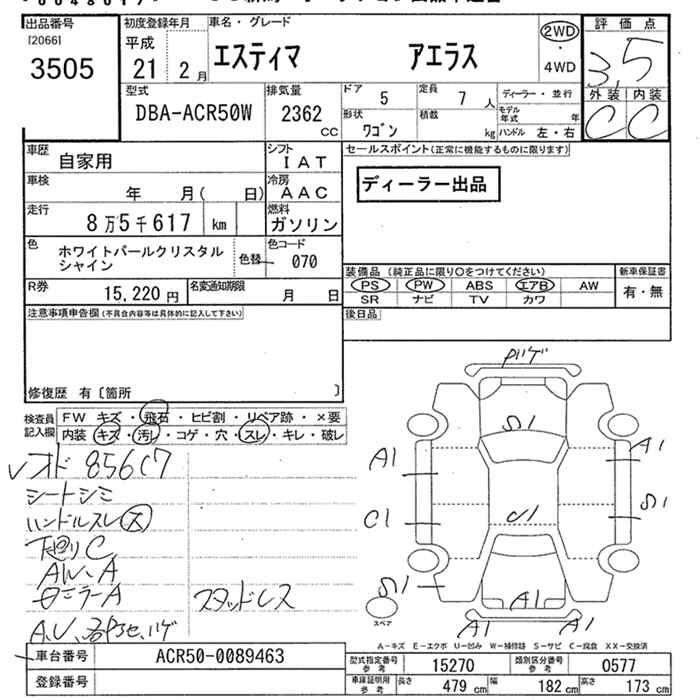 出品番号
[2066]
3505
初度登録年月
平成
21 2 月
車名・グレード
エスティマ アエラス
2WD
・
4WD
評価点
3.5
外装 内装
C C
型式
DBA-ACR50W
排気量
2362
CC
ドア 5
定員 7 人
形状 ワゴン
積載 kg
ディーラー・並行
モデル年式 年
ハンドル 左・右
車歴
自家用
シフト
IAT
車検
年 月( 日)
冷房
AAC
走行
8万5千617 km
燃料
ガソリン
色
ホワイトパールクリスタル
シャイン
色替
色コード
070
R券
15,220 円
名変通知期限
月 日
セールスポイント(正常に機能するものに限ります)
ディーラー出品
装備品 (純正品に限り○をつけてください)
PS PW ABS エアB AW
SR ナビ TV カワ
新車保証書
有・無
後日品
注意事項申告欄(不具合内容等は具体的に記入して下さい)
修復歴 有〔箇所 〕
検査員
記入欄
FW キズ・飛石・ヒビ割・リペア跡・×要
内装 キズ・汚レ・コゲ・穴・スレ・キレ・破レ
オド 85617
シートシミ
ハンドルスレ
下廻りC
AW、A
スタッドレス
ハゲ
A1
A1
C1
A1
A1
A1
スペア
A-キズ E-エクボ U-凹み W-補修跡 S-サビ C-腐食 XX-交換済
車台番号 ACR50-0089463
登録番号
型式指定番号
参考
15270
類別区分番号
参考
0577
車庫証明用
参考
長さ 479 cm
幅 182 cm
高さ 173 cm